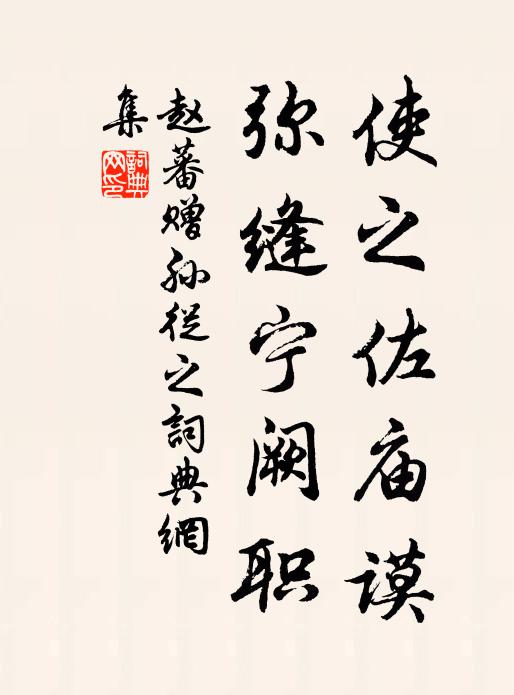 使之佐庙谟
弥缝宁阙职
赵蕃赠孙从之詞典網
集
詞典网印